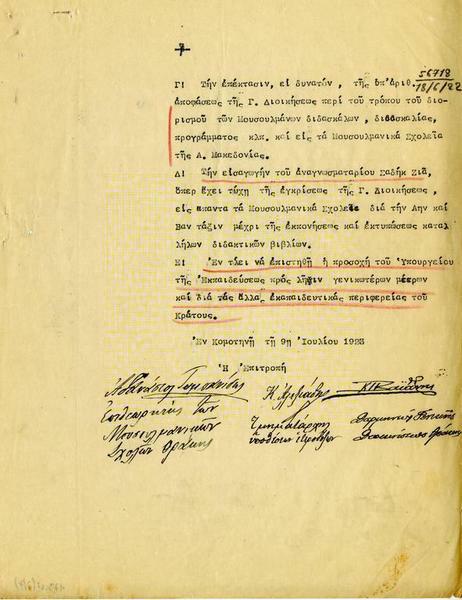 7
56718
18/6/22
Γ! Τήν ἐπέκτασιν, εἰ δυνατόν , τῆς ὑπ'ἀριθ.
ἀποφάσεως τῆς Γ. Διοικήσεως περί τοῦ τρόπου τοῦ διο-
ρισμοῦ τῶν Μουσουλμάνων διδασκάλων , διδασκαλίας,
προγράμματος κλπ. καί εἰς τά Μουσουλμανικά Σχολεῖα
τῆς Α. Μακεδονίας.
Δ! Τήν εἰσαγωγήν τοῦ ἀναγνωσματαρίου Σαδήκ Ζιᾶ,
ὅπερ ἔχει τύχῃ τῆς ἐγκρίσεως τῆς Γ. Διοικήσεως ,
εἰς ἅπαντα τά Μουσουλμανικά Σχολεῖα διά τήν Αην καί
Βαν τάξιν μέχρι τῆς ἐκπονήσεως καί ἐκτυπώσεως καταλ
λήλων διδακτικῶν βιβλίων.
Ε! Ἐν τέλει νά ἐπιστηθῇ ἡ προσοχή τοῦ Ὑπουργείου
τῆς Ἐκπαιδεύσεως πρός λῆψιν γενικωτέρων μέτρων
καί διά τάς ἄλλας ἐκπαιδευτικάς περιφερείας τοῦ
Κράτους.
Ἐν Κομοτηνῇ τῇ 9ῃ Ἰουλίου 1923
Ἡ Ἐπιτροπή
Ἐπιθεωρητής τῶν
Μουσουλμανικῶν
Σχολῶν Θράκης
Τμηματάρχης